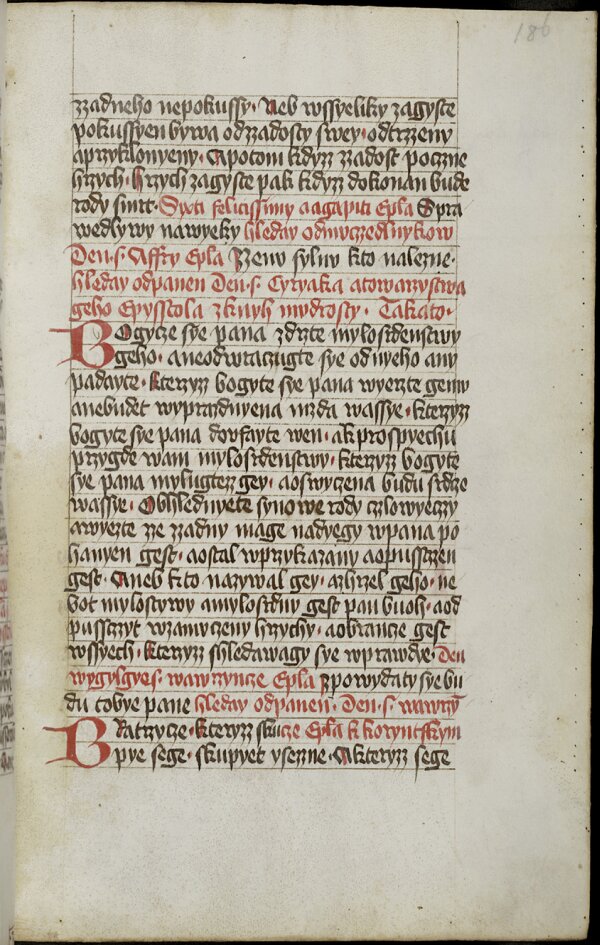 186
zzadneho nepokussy· Neb wssyeliky zagyste
pokussyen bywa od zzadosty swey· odtrzeny
aprzyklonyeny· Apotom kdyzz zzadost poczne
hrzych· hrzych zagyste pak kdyzz dokonan bude
rody smrt· Sixti felicissimy aagapiti Epla Spra
wedlywy nawyeky hleday odmuczedlnykow
Den·s· Affry Epla Zenu sylnu kto nalezne·
hleday odpanen Den·s· Cyryaka atowarzystwa
geho Epysstola zknyh mudrosty· Takato·
BOgycze sye pana zdrzte mylosrdenstwy
geho· aneodwraczugte sye odnyeho any
padayte· kterzyzz bogyte sye pana wyerzte gemu
anebudet wyprazdnyena mzda wassye· kterzyzz
bogyte sye pana doufayte wen· akprospyechu
przygde wam mylosrdenstwy· kterzyzz bogyte
sye pana mylugtezz gey· aoswyczena budu srdze
wassye· Ohlednyete synowe rody czlowyeczy
awyezte ze zzadny mage nadyegy wpana po
hanyen gest· aostal wprzykazany aopusstzen
gest· Aneb kto nazywal gey· azhrzel geho· ne
bot mylostywy amylosrdny gest pan buoh· aod
pussczyt wzamuczeny hrzychy· aobrancze gest
wssyech· kterzyzz shledawagy sye wprawdye· Den
wygylgye·s· wawrzyncze Epla zpowydaty sye bu
du tobye pane hleday odpanen· Den·s· wawrzy
BRatrzycze· kterzyzz skucze Epla k korynctskym
pye sege· skupyet y sezne· Akterzyzz sege